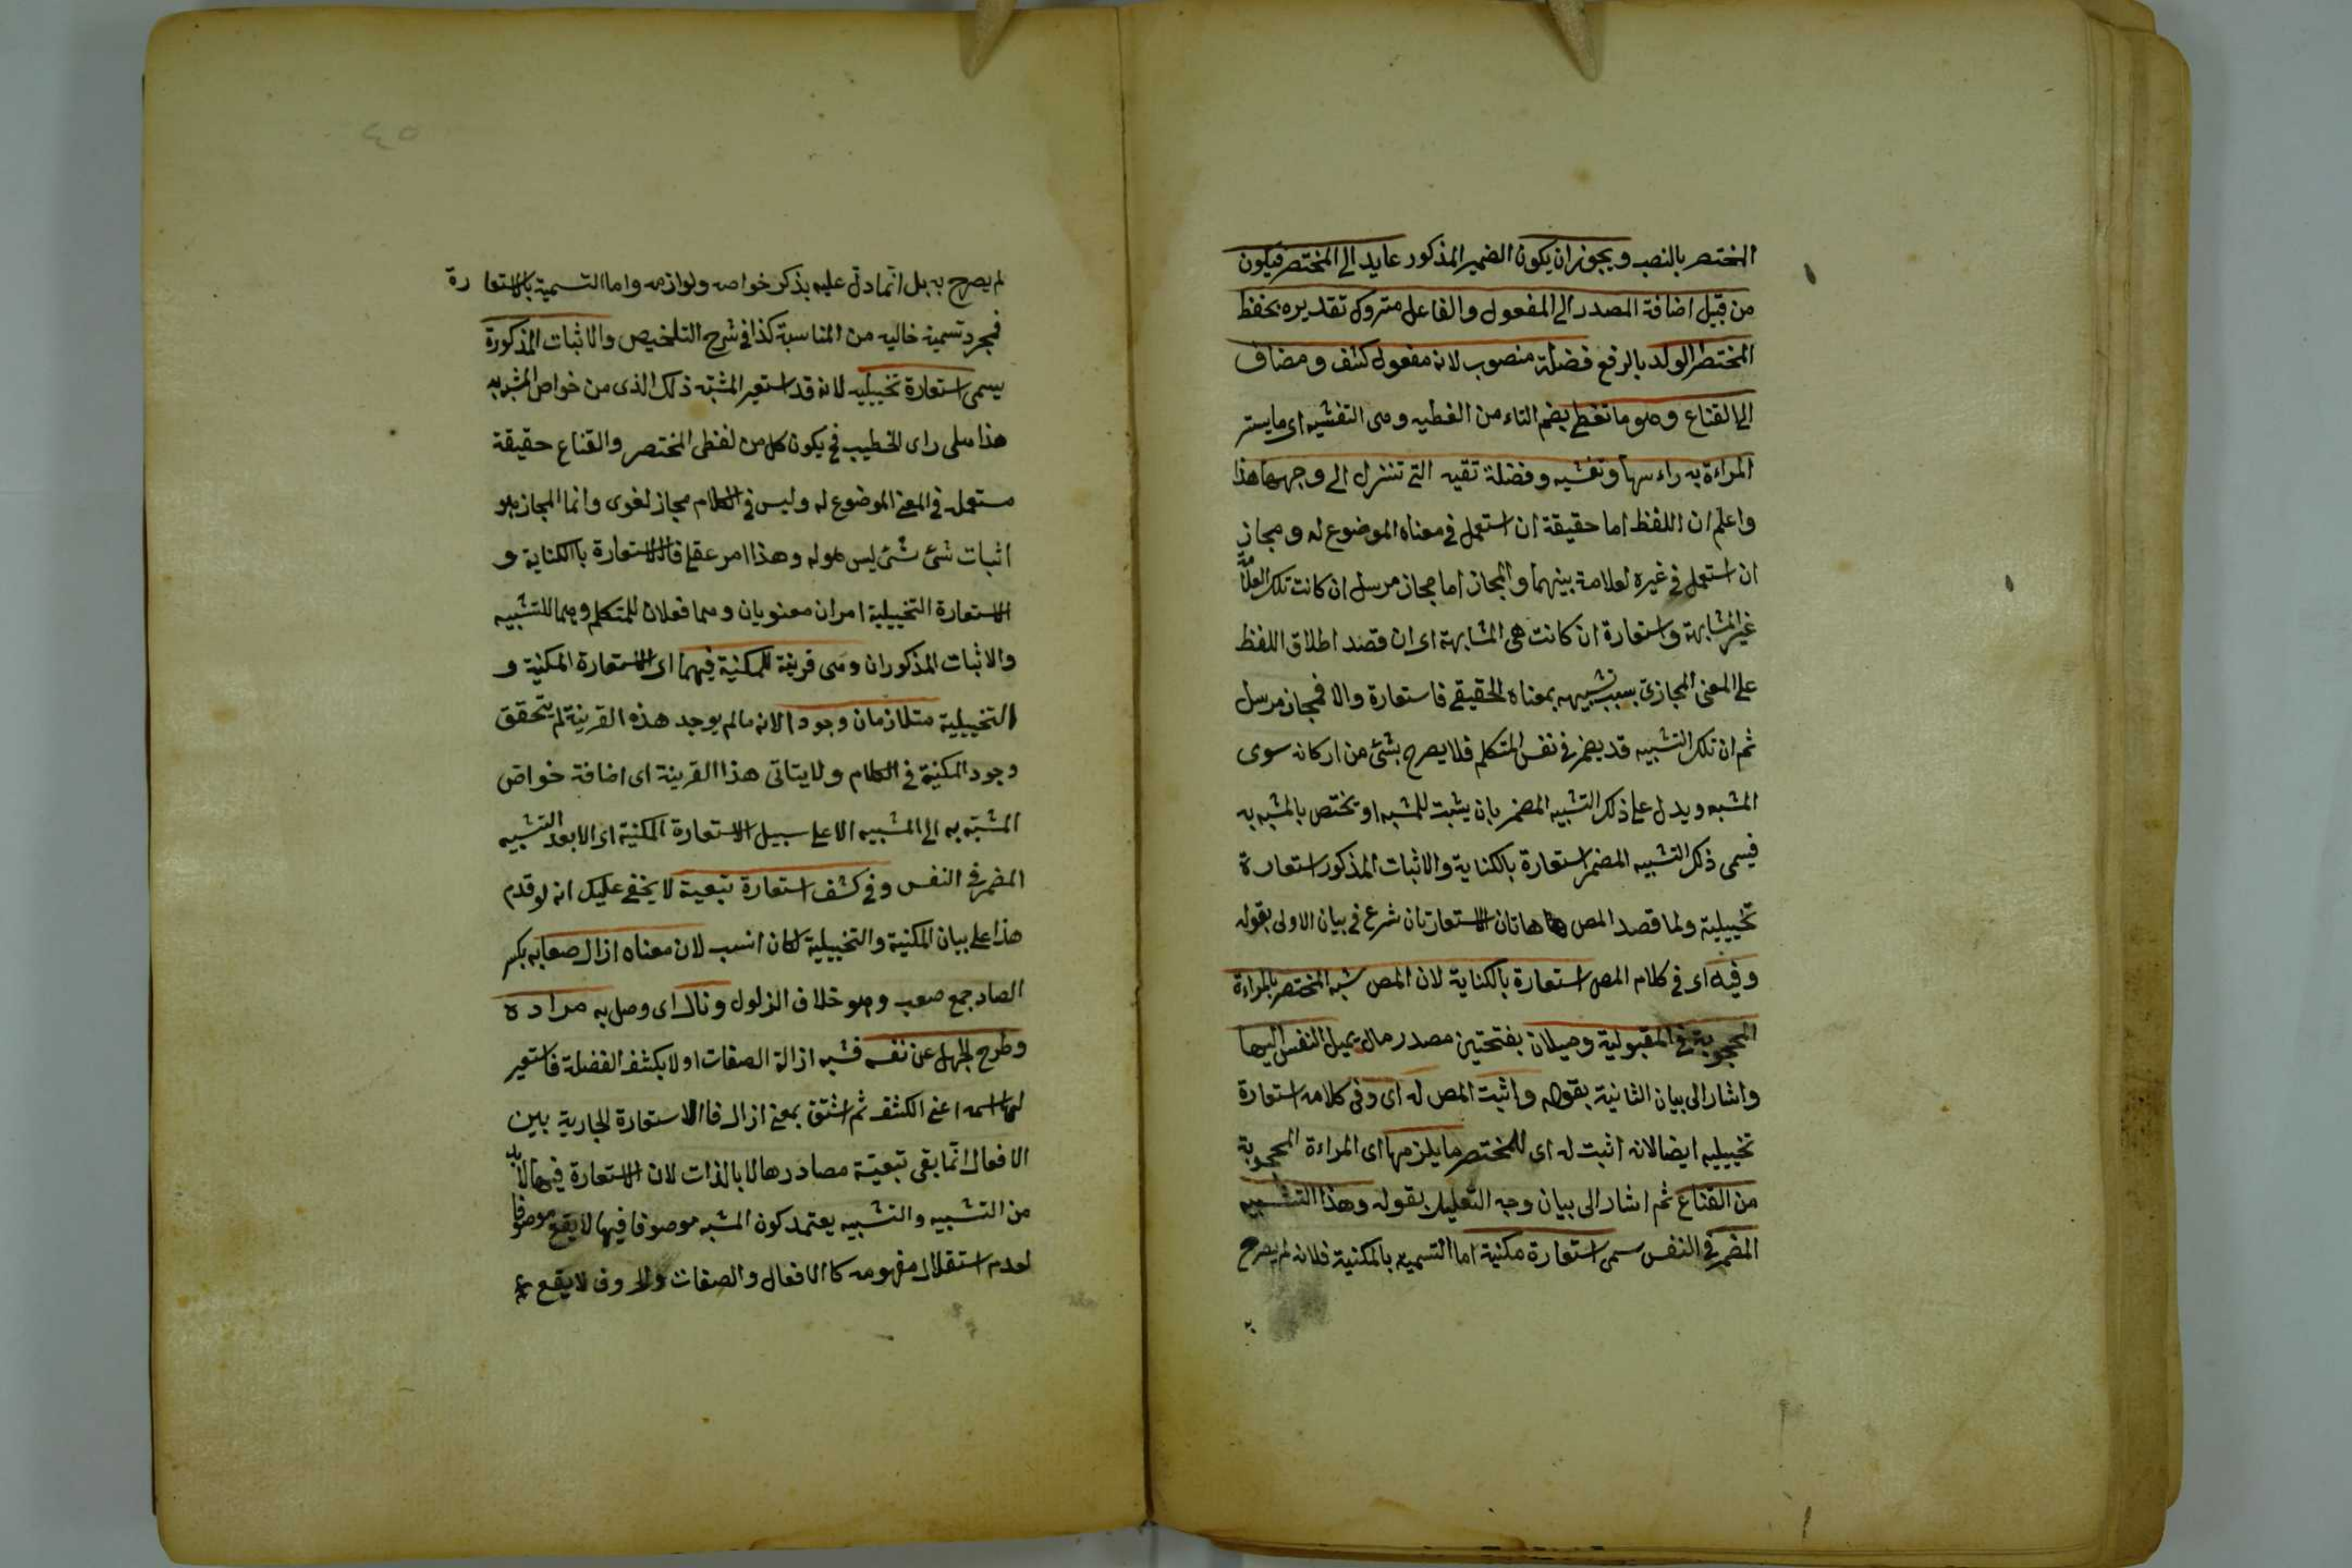 المختصر بالنصب ويجوز ان يكون الضمير المذكور عايد الى المختصر فيكون
من قبيل اضافة المصدر الى المفعول والفاعل متروك تقديره بحفظ
المختصر الولد بالرفع فضلة منصوب لانه مفعول كشف ومضاف
الى القناع وهو ما تغطى بضم التاء من الغطيه وهى التغشيه اى ما يستر
المراءة به راءسها وتغشيه وفضلة تقيه التى تنزل الى وجهها هذا
واعلم ان اللفظ اما حقيقة ان استعمل فى معناه الموضوع له ومجاز
ان استعمل فى غيره لعلامة بينهما والمجاز اما مجاز مرسل ان كانت تلك العلامة
غير المشابهة واستعارة ان كانت هى المشابهة اى ان قصد اطلاق اللفظ
على المعنى المجازى بسبب تشبيهه بمعناه الحقيقى فاستعارة والا فمجاز مرسل
ثم ان تلك التشبيه قد يضمر فى نفس المتكلم فلا يصرح بشئ من اركانه سوى
المشبه ويدل على ذلك التشبيه المضمر بان يثبت للمشبه او يختص بالمشبه به
فيسمى ذلك التشبيه المضمر استعارة بالكناية والاثبات المذكور استعارة
تخييلية ولما قصد المص هاتان الاستعارتان شرع فى بيان الاولى بقوله
وفيه اى فى كلام المص استعارة بالكناية لان المص شبه المختصر بالمراءة
المحجوبة فى المقبولية وميلان بفتحتين مصدر مال يميل النفس اليها
واشار الى بيان الثانية بقوله واثبت المص له اى وفى كلامه استعارة
تخييليه ايضا لانه اثبت له اى للمختصر ما يلزمها اى المراءة المحجوبة
من القناع ثم اشار الى بيان وجه التعليل بقوله وهذا التشبيه
المضمر فى النفس سمى استعارة مكنية اما التسميه بالمكنية فلانه لم يصرح
لم يصرح به بل انما دل عليه بذكر خواصه ولوازمه واما التسمية بالاستعارة
فمجرد تسمية خاليه من المناسبة كذا فى شرح التلخيص والاثبات المذكورة
يسمى استعارة تخييليه لانه قد استعير المشبه ذلك الذى من خواص المشبه به
هذا على راى الخطيب فح يكون كل من لفظى المختصر والقناع حقيقة
مستعمله فى المعنى الموضوع له وليس فى الكلام مجاز لغوى وانما المجاز هو
اثبات شئ شئ ليس هو له وهذا امر عقلى فالاستعارة بالكناية و
الاستعارة التخييلية امران معنويان وهما فعلان للمتكلم وهما للتشبيه
والاثبات المذكوران وهى قرينة للمكنية فيهما اى الاستعارة المكنية و
التخييلية متلازمان وجودا لانه مالم يوجد هذه القرينة لم يتحقق
وجود المكنية فى الكلام ولا يتاتى هذا القرينة اى اضافة خواص
المشبه به الى المشبيه الا على سبيل الاستعارة المكنية اى الا بعد التشبيه
المضمر فى النفس وفى كشف استعارة تبعية لا يخفى عليك انه لو قدم
هذا على بيان المكنية والتخييلية لكان انسب لان معناه ازال صعابه بكسر
الصاد جمع صعب وهو خلاف الزلول ونال اى وصل به مراده
وطرح الجهل عن نفسه فشبه ازالة الصفات اولا بكشف الفضلة فاستعير
لها اسمه اعنى الكشف ثم اشتق بمعنى ازال فالاستعارة الجارية بين
الافعال انما بقى تبعيّة مصادرها لا بالذات لان الاستعارة فيها لابد
من التشبيه والتشبيه يعتمد كون المشبه موصوفا فيها لا يقع موصوفا
لعدم استقلال مفهومه كالافعال والصفات والحروف لا يقع